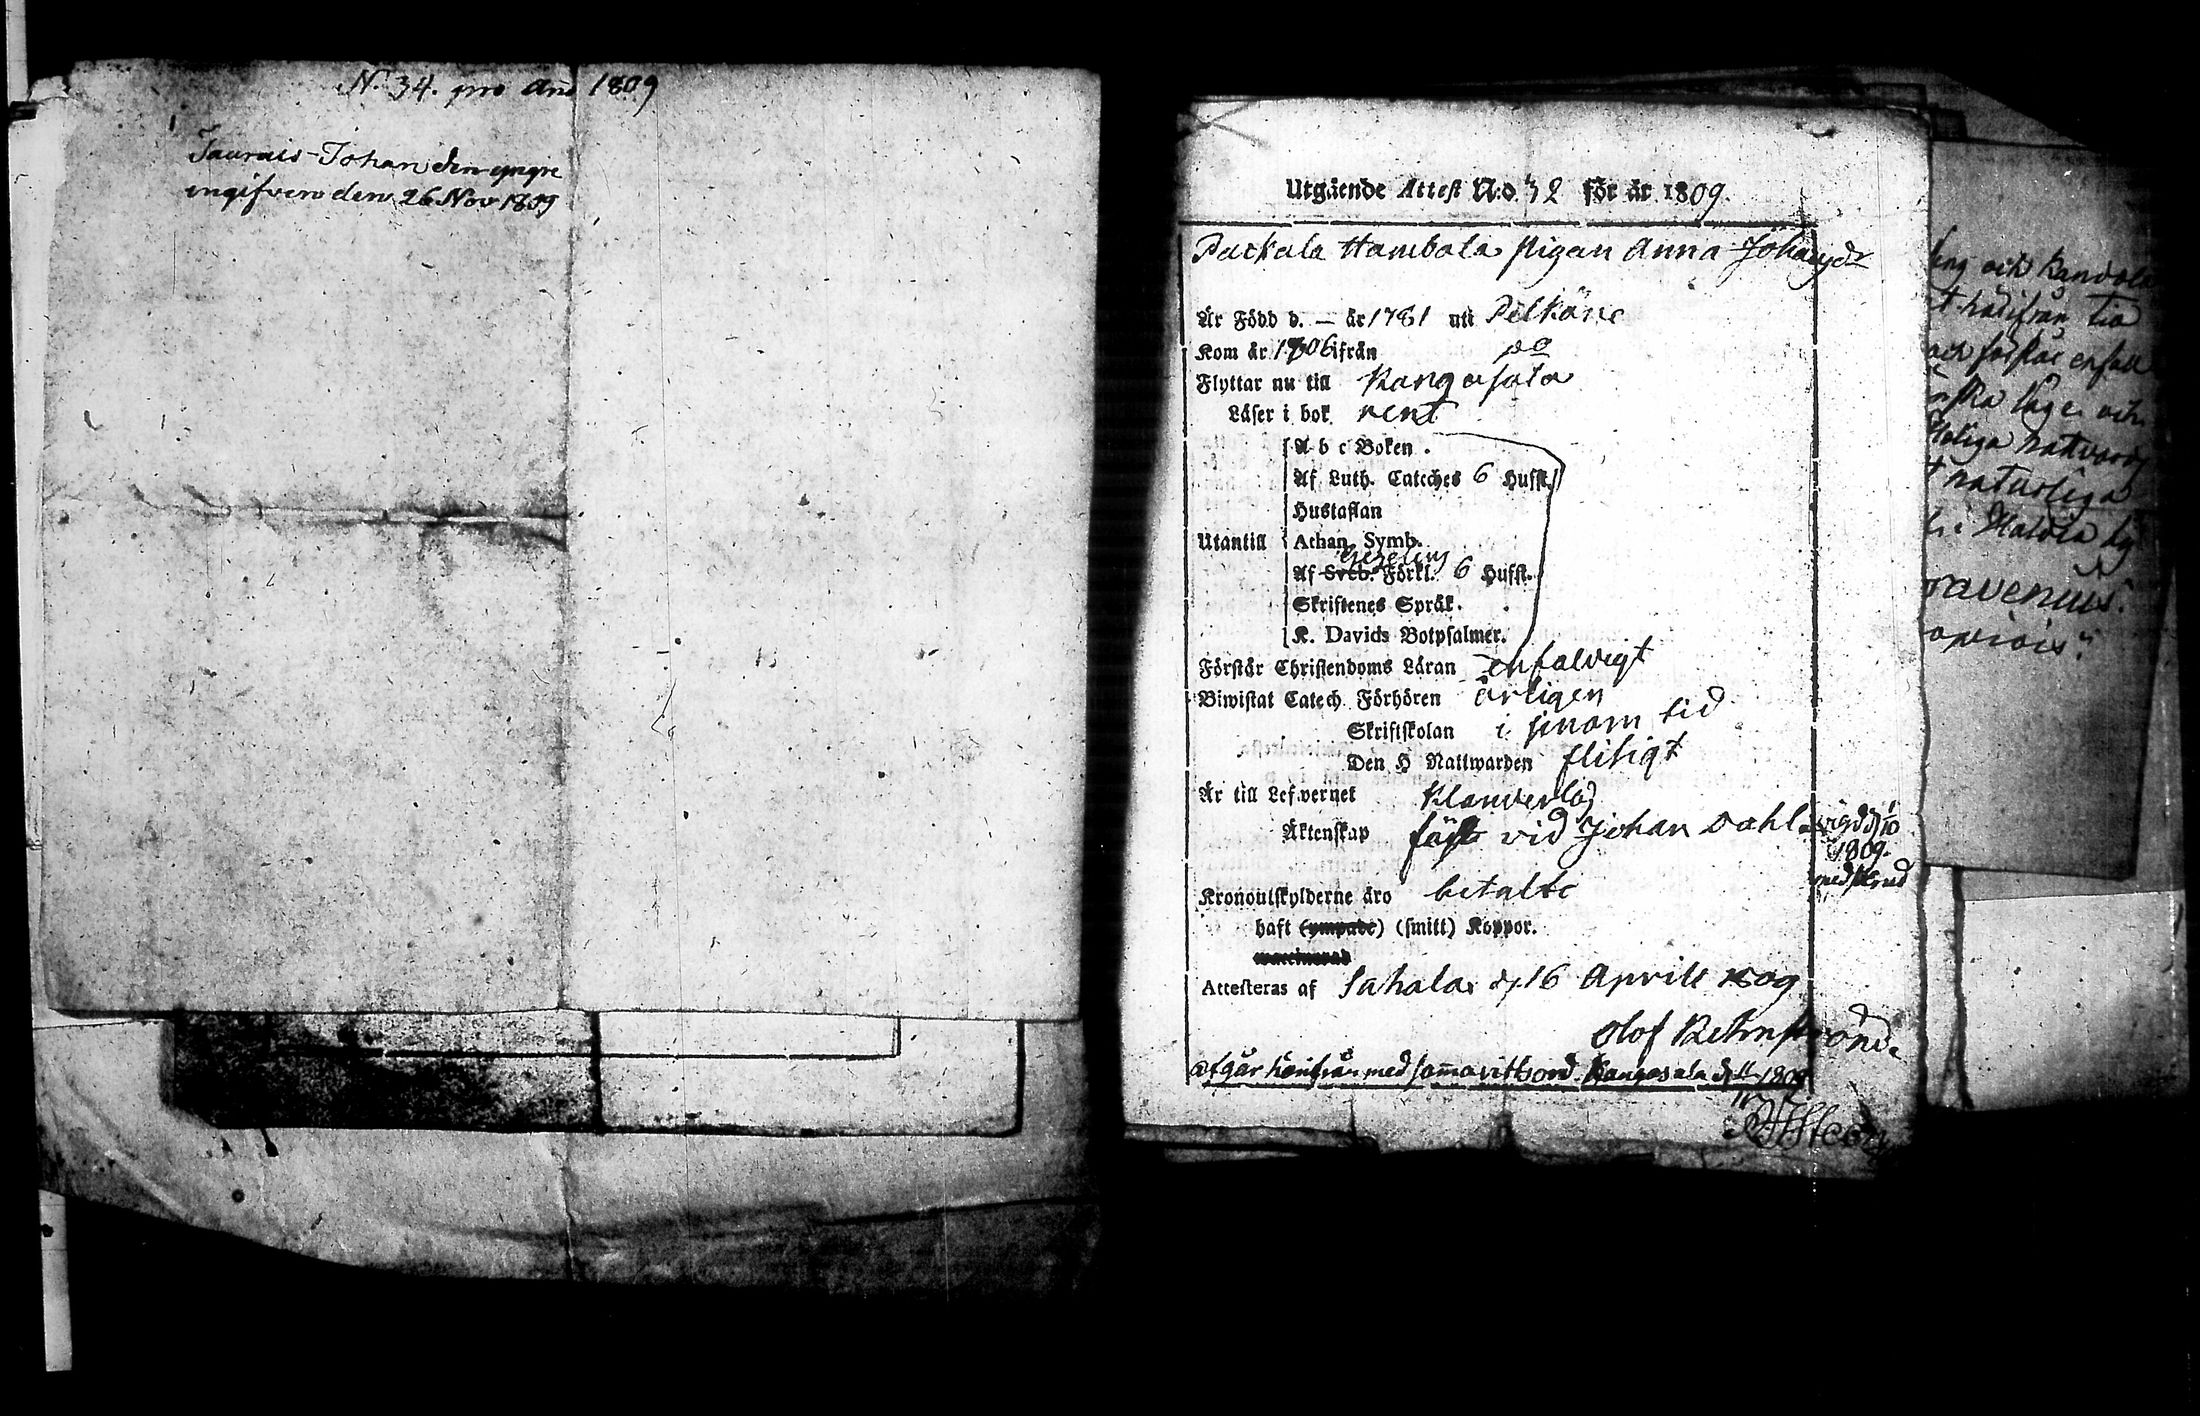 N. 34. pro Ano 1809
Taurais-Johan den yngre
ingifven den 26 Nov 1809
Utgående Attest N:o. 32 för år 1809.
Packala Hambala pigan Anna Johansdr
Är Född d. — år 1781 uti Pelkäne
Kom år 1806 ifrån do
Flyttar nu till Kangasala
Läser i bok rent
A b c Boken.
Af Luth. Cateches 6 Hufst.
Hustaflan
Utantill Athan. Symb.
Gezelius
Af Sveb. Förkl. 6 Hufst.
Skriftenes Språk.
K. Davids Botpsalmer.
Förstår Christendoms Läran enfaldigt
Biwistat Catech. Förhören årligen
Skriftskolan i sinom tid
Den H Nattwarden flitigt
Är till Lefvernet klanderlös
Äktenskap fäst vid Johan Dahl
vigd d 1/10
1809.
Kronoutskylderne äro betalte
haft (ympade) (smitt) Koppor.
waccinerad
Attesteras af Sahala d. 16 Aprill 1809
Olof Rehnstrand.
afgår härifrån med samma vittsord. Kangasala d 1809
eng och
t härifrån tia
och förstår enfald
och
Heliga nattvard
t naturliga